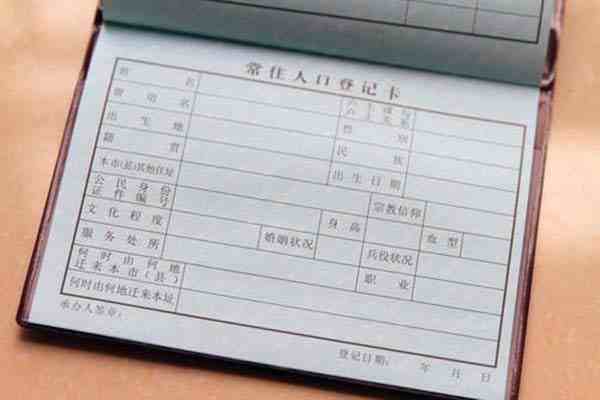 常住人口登记卡
姓 名 户主或与户主关系
曾用名 性 别
出生地 民 族
籍 贯 出生日期
本市(县)其他住址 宗教信仰
公民身份证件编号 身 高 血 型
文化程度 婚姻状况 兵役状况
服务处所 职 业
何时由何地迁来本市(县)
何时由何地迁来本址
承办人签章: 登记日期: 年 月 日